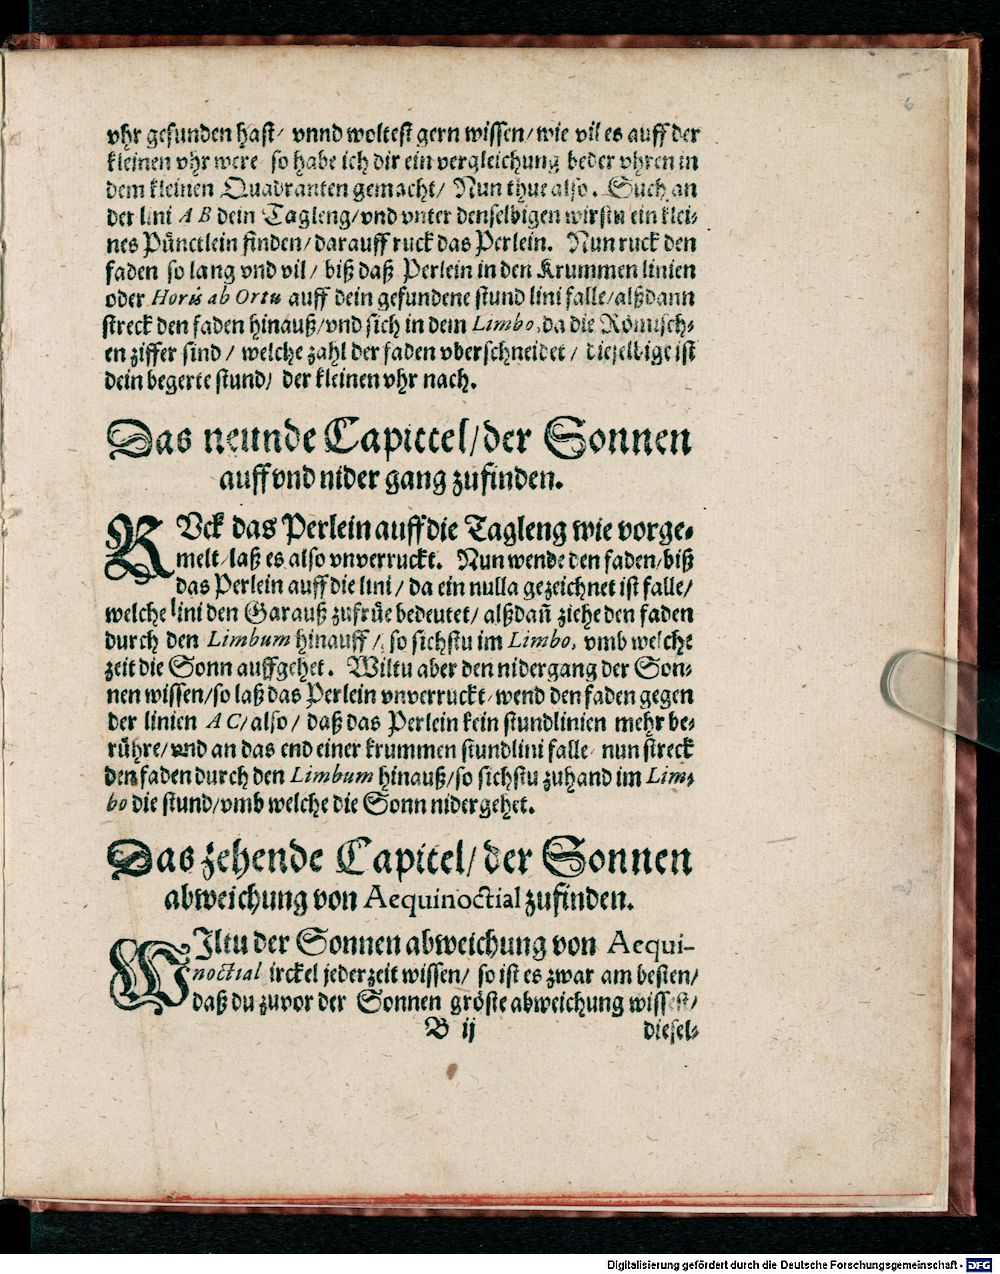 6
vhr gefunden hast/ vnnd woltest gern wissen/ wie vil es auff der
kleinen vhr were so habe ich dir ein vergleichung beder vhren in
dem kleinen Quadranten gemacht/ Nun thue also. Such an
der lini A B dein Tagleng/ vnd vnter denselbigen wirstu ein klei-
nes Pünctlein finden/ darauff ruck das Perlein. Nun ruck den
faden so lang vnd vil/ biß daß Perlein in den Krummen linien
oder Horis ab Ortu auff dein gefundene stund lini falle/ alßdann
streck den faden hinauß/ vnd sich in dem Limbo, da die Römisch-
en ziffer sind/ welche zahl der faden vberschneidet/ dieselbige ist
dein begerte stund/ der kleinen vhr nach.
Das neunde Capittel/ der Sonnen
auff vnd nider gang zufinden.
RVck das Perlein auff die Tagleng wie vorge-
melt/ laß es also vnverruckt. Nun wende den faden/ biß
das Perlein auff die lini/ da ein nulla gezeichnet ist falle/
welche lini den Garauß zufrüe bedeutet/ alßdañ ziehe den faden
durch den Limbum hinauff/ so sichstu im Limbo, vmb welche
zeit die Sonn auffgehet. Wiltu aber den nidergang der Son-
nen wissen/ so laß das Perlein vnverruckt/ wend den faden gegen
der linien A C/ also/ daß das Perlein kein stundlinien mehr be-
rühre/ vnd an das end einer krummen stundlini falle/ nun streck
den faden durch den Limbum hinauß/ so sichstu zuhand im Lim-
bo die stund/ vmb welche die Sonn nidergehet.
Das zehende Capitel/ der Sonnen
abweichung von Aequinoctial zufinden.
WIltu der Sonnen abweichung von Aequi-
noctial irckel jederzeit wissen/ so ist es zwar am besten/
daß du zuvor der Sonnen gröste abweichung wissest/
B ij diesel-
Digitalisierung gefördert durch die Deutsche Forschungsgemeinschaft - DFG